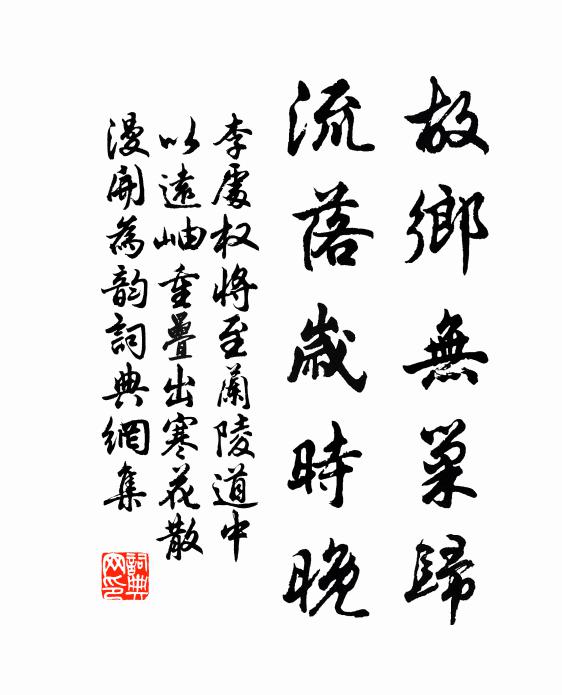 故鄉無巢歸
流落歲時晚
李處权將至蘭陵道中
以遠岫重疊出寒花散
漫開為韵詞典網集
詞典
网印